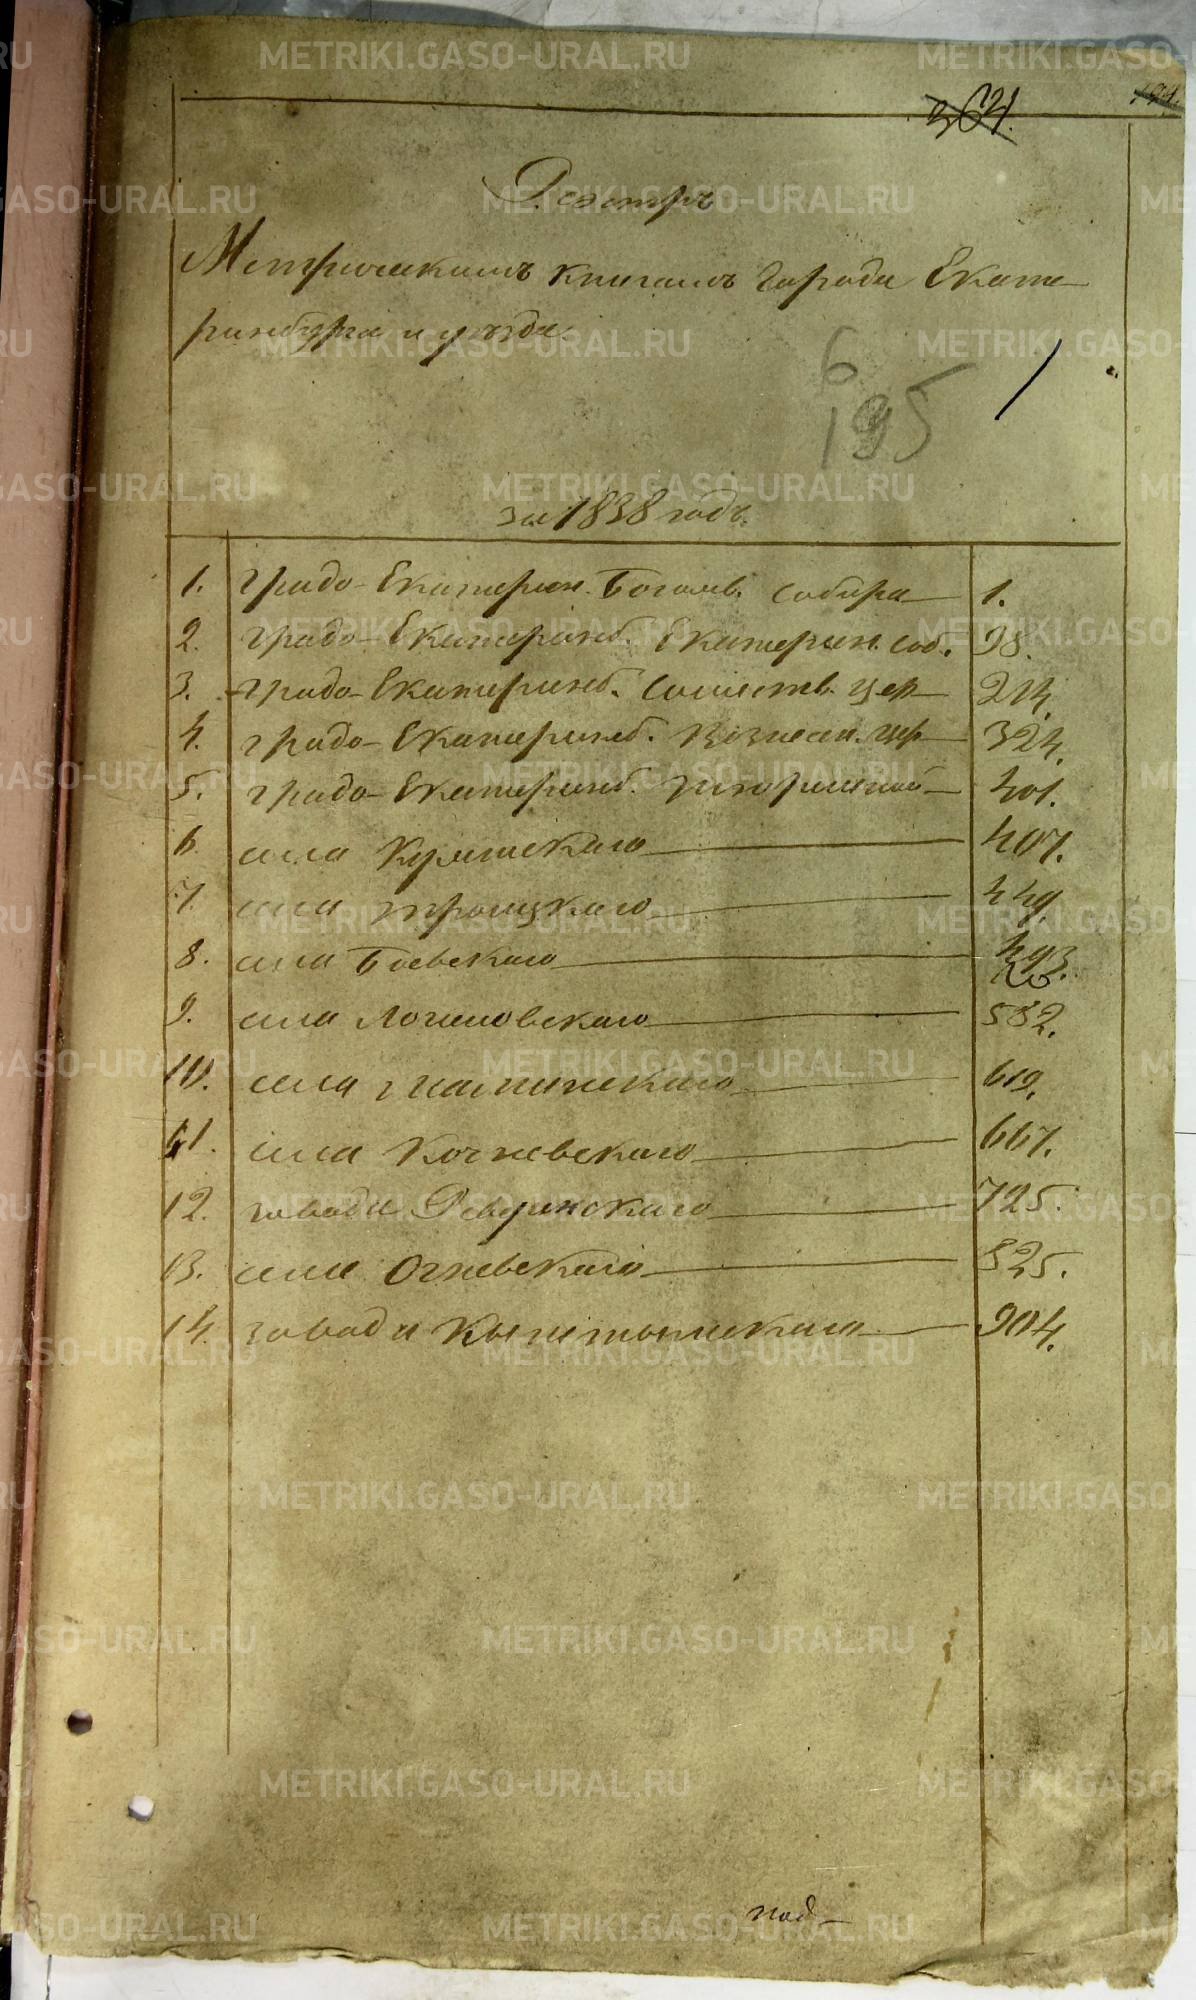 364.
194.
Реэстръ
Метрическимъ книгамъ города Екате-
ринбурга и уѣзда
6
195
за 1838 годъ.
1. градо-Екатерин. Богояв. собора 1.
2. градо-Екатеринб. Екатерин. соб. 98.
3. градо-Екатеринб. Сошеств. цер 214.
4. градо-Екатеринб. Вознесен. цер 324.
5. градо-Екатеринб. 401.
6. села Куяшскаго 407.
7. села Троицкаго 449.
8. села Боевскаго 493.
9. села Логиновскаго 582.
10. села 619.
11. села Кочневскаго 667.
12. завода Ревдинскаго 725.
13. села Огневскаго 825.
14. завода Кыштымскаго 904.
под-
METRIKI.GASO-URAL.RU